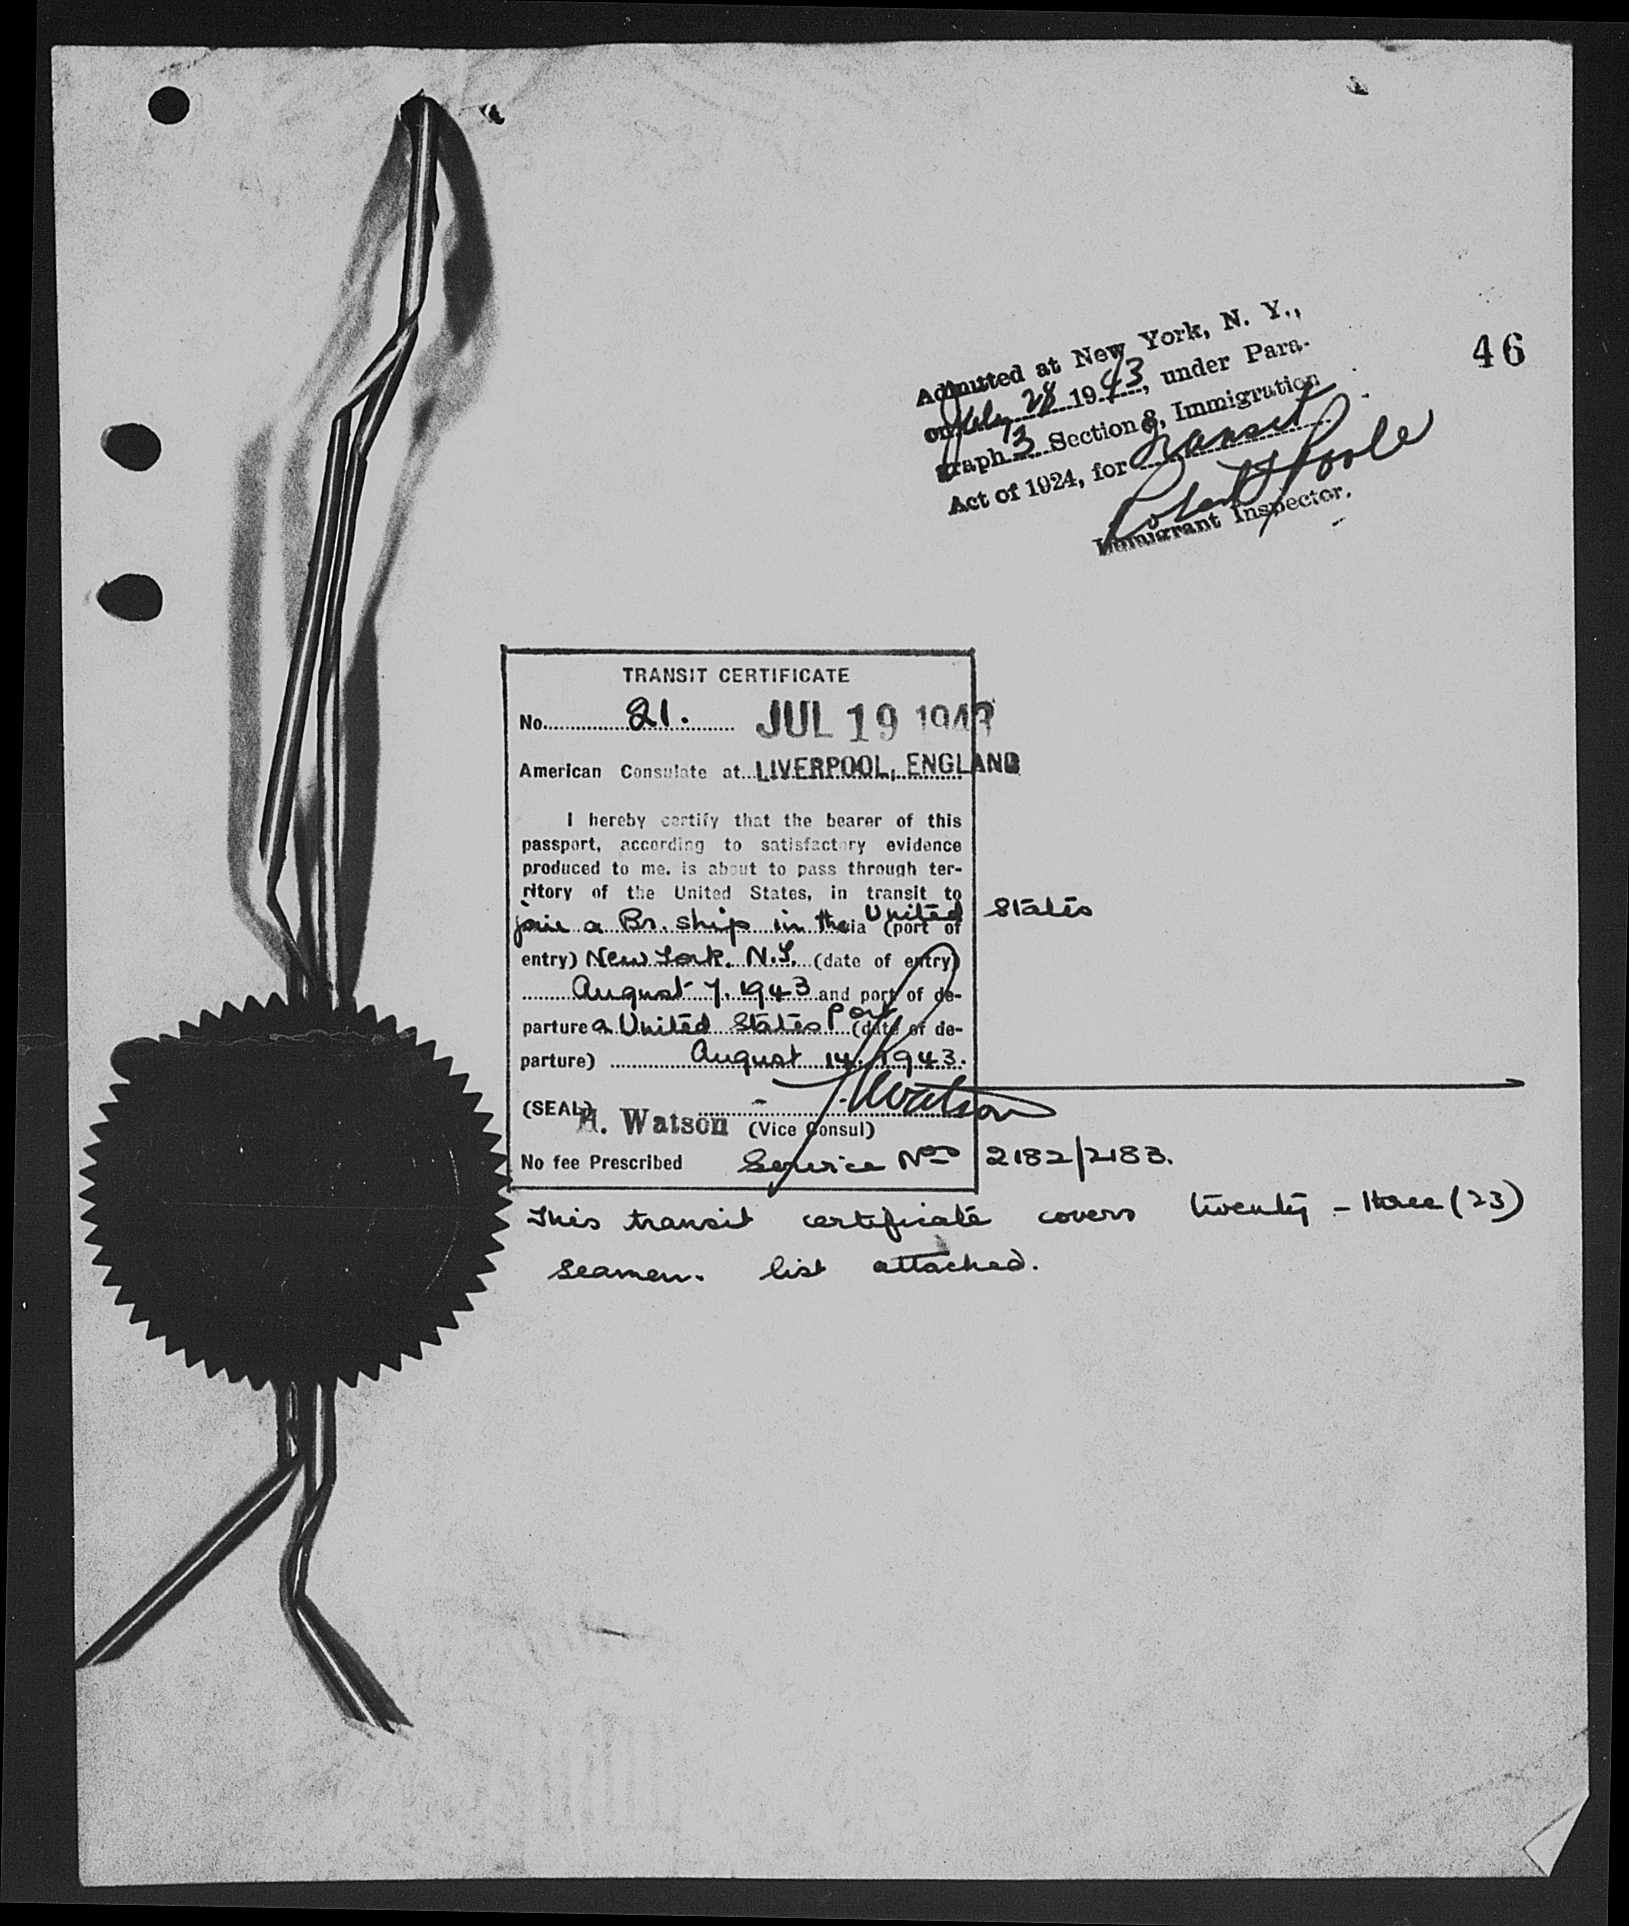 46
Admitted at New York, N. Y.,
on July 28 1943, under Para-
graph 3 Section 3, Immigration
Act of 1924, for Transit
Robert J Poole
Immigrant Inspector.
TRANSIT CERTIFICATE
No. 21. JUL 19 1943
American Consulate at LIVERPOOL, ENGLAND
I hereby certify that the bearer of this
passport, according to satisfactory evidence
produced to me, is about to pass through ter-
ritory of the United States, in transit to
join a Br. ship in the United States via (port of
entry) New York. N.Y. (date of entry)
August 7, 1943 and port of de-
parture a United States Port (date of de-
parture) August 14, 1943.
(SEAL) H. Watson
H. Watson (Vice Consul)
No fee Prescribed Service Nos 2182/2183.
This transit certificate covers twenty - three (23)
seamen. list attached.